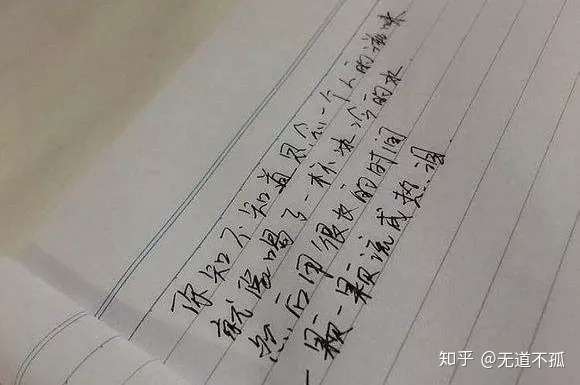 你知不知道思念一个人的滋味
就像喝了一杯冰冷的水
然后用很长的时间
一颗一颗流成热泪
知乎 @无道不孤